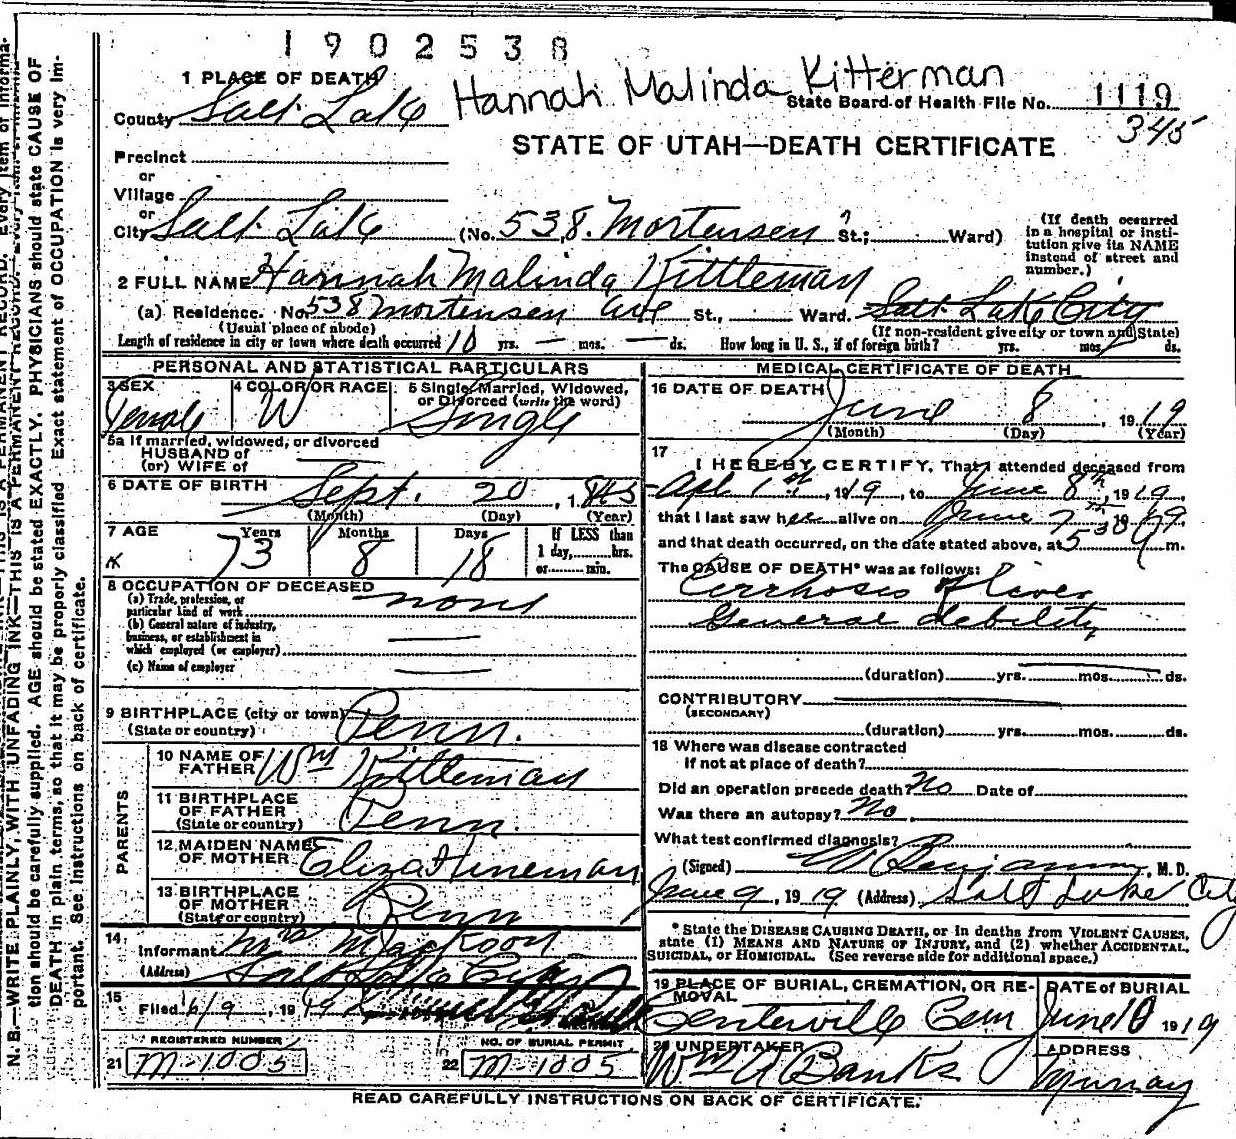 1902538
Hannah Malinda Kitterman
1 PLACE OF DEATH
State Board of Health File No. 1119
County Salt Lake
345
STATE OF UTAH—DEATH CERTIFICATE
Precinct
or
Village
or
City Salt Lake (No. 538. Mortensen ? St.; Ward)
(If death occurred in a hospital or institution give its NAME instead of street and number.)
2 FULL NAME Hannah Malinda Kittleman
(a) Residence. No. 538 Mortensen Ave St., Ward. Salt Lake City
(Usual place of abode) (If non-resident give city or town and State)
Length of residence in city or town where death occurred 10 yrs. — mos. — ds. How long in U. S., if of foreign birth? yrs. mos. ds.
PERSONAL AND STATISTICAL PARTICULARS
3 SEX Female
4 COLOR OR RACE W
5 Single, Married, Widowed, or Divorced (write the word) Single
5a If married, widowed, or divorced
HUSBAND of
(or) WIFE of
6 DATE OF BIRTH Sept. 20, 1845
(Month) (Day) (Year)
7 AGE Years 73 Months 8 Days 18 If LESS than 1 day, hrs. or min.
8 OCCUPATION OF DECEASED
(a) Trade, profession, or particular kind of work none
(b) General nature of industry, business, or establishment in which employed (or employer)
(c) Name of employer
9 BIRTHPLACE (city or town) Penn.
(State or country)
PARENTS
10 NAME OF FATHER Wm Kittleman
11 BIRTHPLACE OF FATHER (State or country) Penn.
12 MAIDEN NAME OF MOTHER Eliza Hineman
13 BIRTHPLACE OF MOTHER (State or country) Penn
14 Informant Mrs M Jackson
(Address) Salt Lake City
15 Filed 6/9, 1919
REGISTERED NUMBER
21 M-1005
NO. OF BURIAL PERMIT
22 M-1005
MEDICAL CERTIFICATE OF DEATH
16 DATE OF DEATH June 8, 1919
(Month) (Day) (Year)
17 I HEREBY CERTIFY, That I attended deceased from
Apl 1st, 1919, to June 8th, 1919,
that I last saw her alive on June 7th, 1919
and that death occurred, on the date stated above, at 5 30 m.
The CAUSE OF DEATH* was as follows:
Cirrhosis of liver
General debility
(duration) yrs. mos. ds.
CONTRIBUTORY
(SECONDARY)
(duration) yrs. mos. ds.
18 Where was disease contracted
If not at place of death?
Did an operation precede death? No Date of
Was there an autopsy? No
What test confirmed diagnosis?
(Signed) Benjamin, M. D.
June 9, 1919 (Address) Salt Lake City
* State the DISEASE CAUSING DEATH, or in deaths from VIOLENT CAUSES,
state (1) MEANS AND NATURE OF INJURY, and (2) whether ACCIDENTAL,
SUICIDAL, or HOMICIDAL. (See reverse side for additional space.)
19 PLACE OF BURIAL, CREMATION, OR REMOVAL Centerville Cem
DATE of BURIAL June 10 1919
20 UNDERTAKER Wm A Banks
ADDRESS Murray
READ CAREFULLY INSTRUCTIONS ON BACK OF CERTIFICATE.
N. B.—WRITE PLAINLY, WITH UNFADING INK—THIS IS A PERMANENT RECORD. Every item of information should be carefully supplied. AGE should be stated EXACTLY. PHYSICIANS should state CAUSE OF DEATH in plain terms, so that it may be properly classified. Exact statement of OCCUPATION is very important. See instructions on back of certificate.